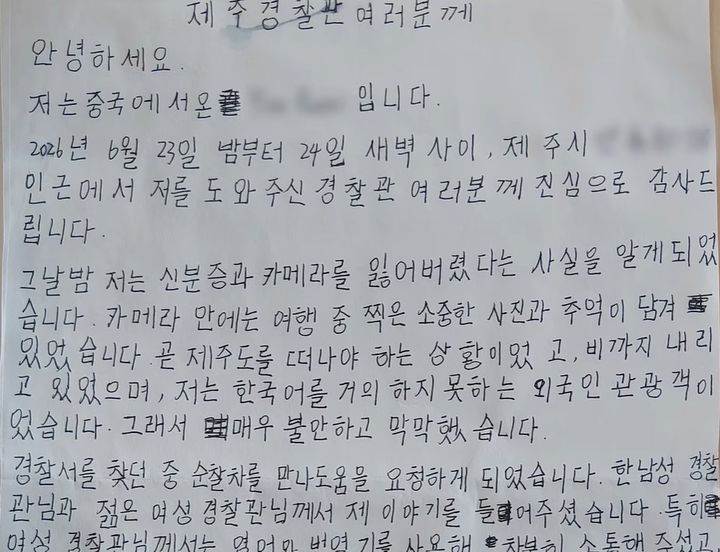 제주경찰관여러분께
안녕하세요.
저는중국에서온 입니다.
2026년 6월 23일 밤부터 24일 새벽 사이, 제주시
인근에서 저를 도와주신 경찰관 여러분께 진심으로 감사드
립니다.
그날밤 저는 신분증과 카메라를 잃어버렸다는 사실을 알게되었
습니다. 카메라 안에는 여행 중 찍은 소중한 사진과 추억이 담겨
있었습니다. 곧 제주도를 떠나야 하는 상황이었고, 비까지 내리
고 있었으며, 저는 한국어를 거의 하지못하는 외국인 관광객이
었습니다. 그래서 매우 불안하고 막막했습니다.
경찰서를 찾던 중 순찰차를 만나도움을 요청하게 되었습니다. 한남성 경찰
관님과 젊은 여성 경찰관님께서 제 이야기를 들어주셨습니다. 특히
여성 경찰관님께서는 영어와 번역기를 사용해 차분히 소통해 주셨고